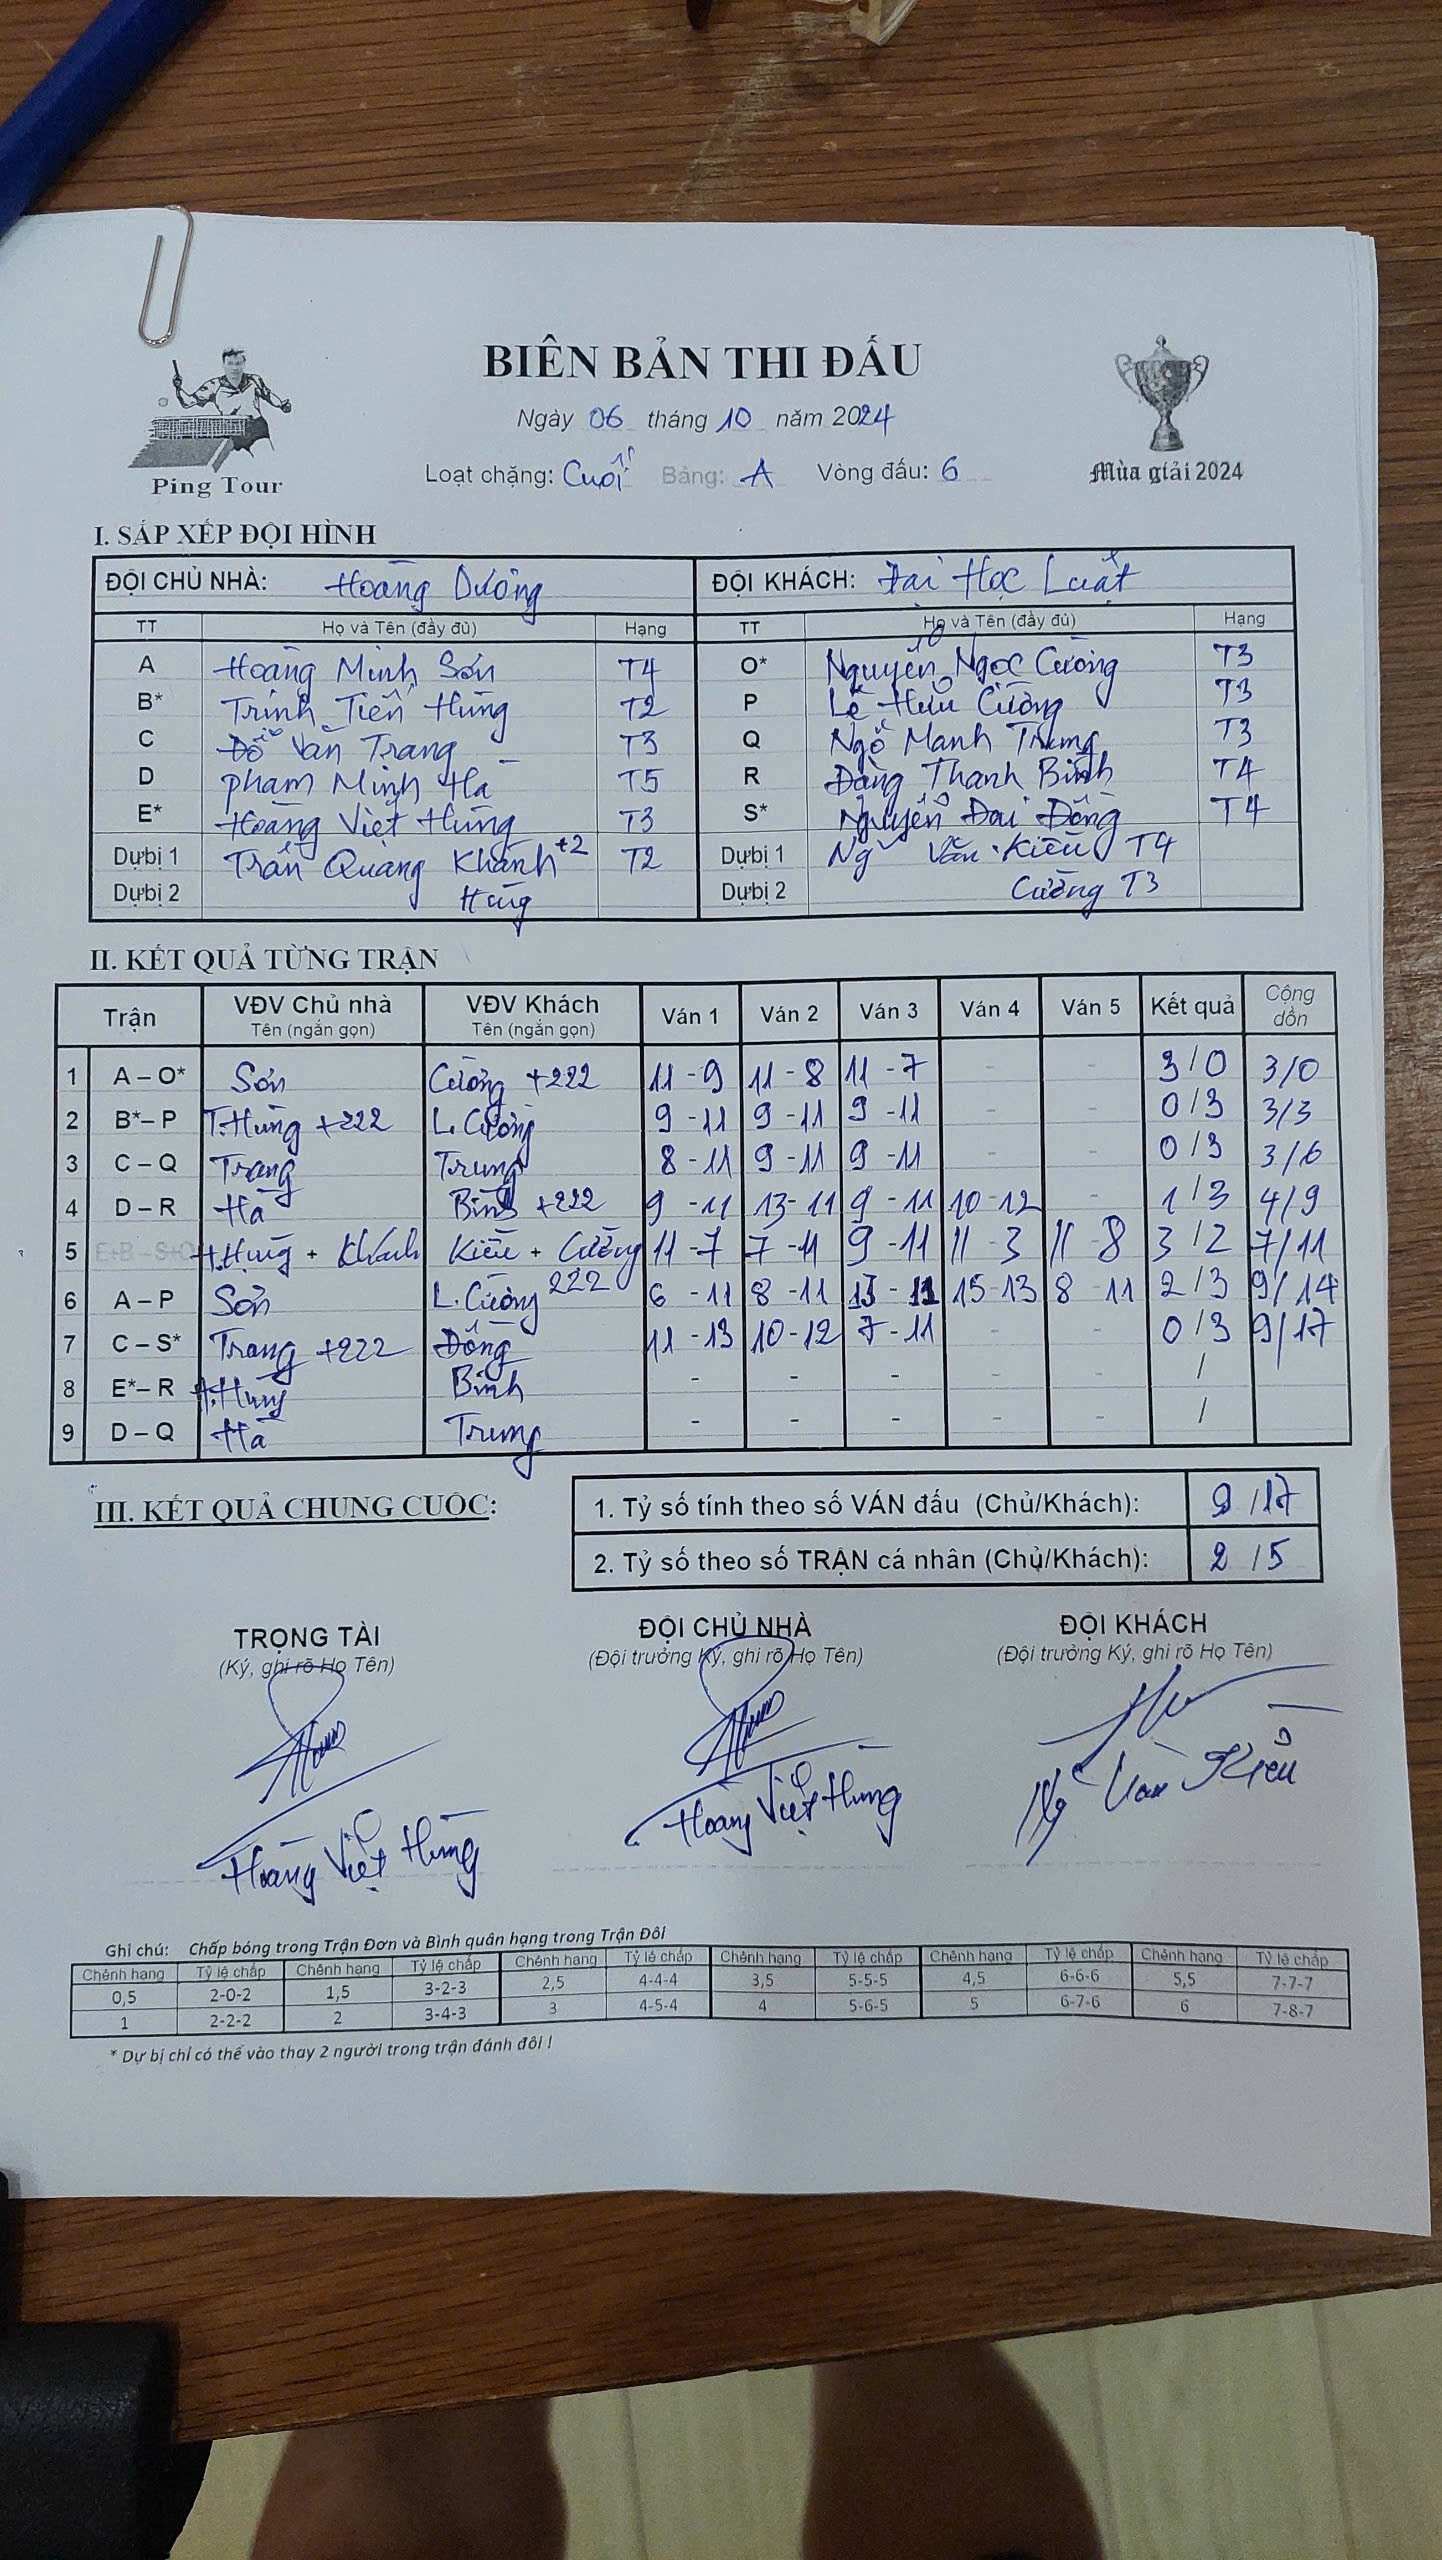 BIÊN BẢN THI ĐẤU
Ngày 06 tháng 10 năm 2024
Loạt chặng: Cuối Bảng: A Vòng đấu: 6
Ping Tour
Mùa giải 2024
I. SẮP XẾP ĐỘI HÌNH
ĐỘI CHỦ NHÀ: Hoàng Dương ĐỘI KHÁCH: Đại Học Luật
TT Họ và Tên (đầy đủ) Hạng TT Họ và Tên (đầy đủ) Hạng
A Hoàng Minh Sơn T4 O* Nguyễn Ngọc Cương T3
B* Trịnh Tiến Hùng T2 P Lê Hữu Cường T3
C Đỗ Văn Trang T3 Q Ngô Mạnh Trung T3
D Phạm Minh Hà T5 R Đặng Thanh Bình T4
E* Hoàng Việt Hùng T3 S* Nguyễn Đại Đồng T4
Dự bị 1 Trần Quang Khánh +2 T2 Dự bị 1 Ng Văn Kiều T4
Dự bị 2 Hùng Dự bị 2 Cường T3
II. KẾT QUẢ TỪNG TRẬN
Trận VĐV Chủ nhà Tên (ngắn gọn) VĐV Khách Tên (ngắn gọn) Ván 1 Ván 2 Ván 3 Ván 4 Ván 5 Kết quả Cộng dồn
1 A – O* Sơn Cương +222 11 - 9 11 - 8 11 - 7 - - 3 / 0 3/0
2 B*– P T.Hùng +222 L. Cường 9 - 11 9 - 11 9 - 11 - - 0 / 3 3/3
3 C – Q Trang Trung 8 - 11 9 - 11 9 - 11 - - 0 / 3 3/6
4 D – R Hà Bình +222 9 - 11 13 - 11 9 - 11 10 - 12 - 1 / 3 4/9
5 E+B – S+O H.Hùng + Khánh Kiều + Cường 11 - 7 7 - 11 9 - 11 11 - 3 11 - 8 3 / 2 7/11
6 A – P Sơn L. Cường 222 6 - 11 8 - 11 13 - 11 15 - 13 8 - 11 2 / 3 9/14
7 C – S* Trang +222 Đồng 11 - 13 10 - 12 7 - 11 - - 0 / 3 9/17
8 E*– R H.Hùng Bình - - - - - /
9 D – Q Hà Trung - - - - - /
III. KẾT QUẢ CHUNG CUỘC:
1. Tỷ số tính theo số VÁN đấu (Chủ/Khách): 9 / 17
2. Tỷ số theo số TRẬN cá nhân (Chủ/Khách): 2 / 5
TRỌNG TÀI ĐỘI CHỦ NHÀ ĐỘI KHÁCH
(Ký, ghi rõ Họ Tên) (Đội trưởng Ký, ghi rõ Họ Tên) (Đội trưởng Ký, ghi rõ Họ Tên)
Hoàng Việt Hùng Hoàng Việt Hùng Ng Văn Kiều
Ghi chú: Chấp bóng trong Trận Đơn và Bình quân hạng trong Trận Đôi
Chênh hạng Tỷ lệ chấp Chênh hạng Tỷ lệ chấp Chênh hạng Tỷ lệ chấp Chênh hạng Tỷ lệ chấp Chênh hạng Tỷ lệ chấp Chênh hạng Tỷ lệ chấp
0,5 2-0-2 1,5 3-2-3 2,5 4-4-4 3,5 5-5-5 4,5 6-6-6 5,5 7-7-7
1 2-2-2 2 3-4-3 3 4-5-4 4 5-6-5 5 6-7-6 6 7-8-7
* Dự bị chỉ có thể vào thay 2 người trong trận đánh đôi !